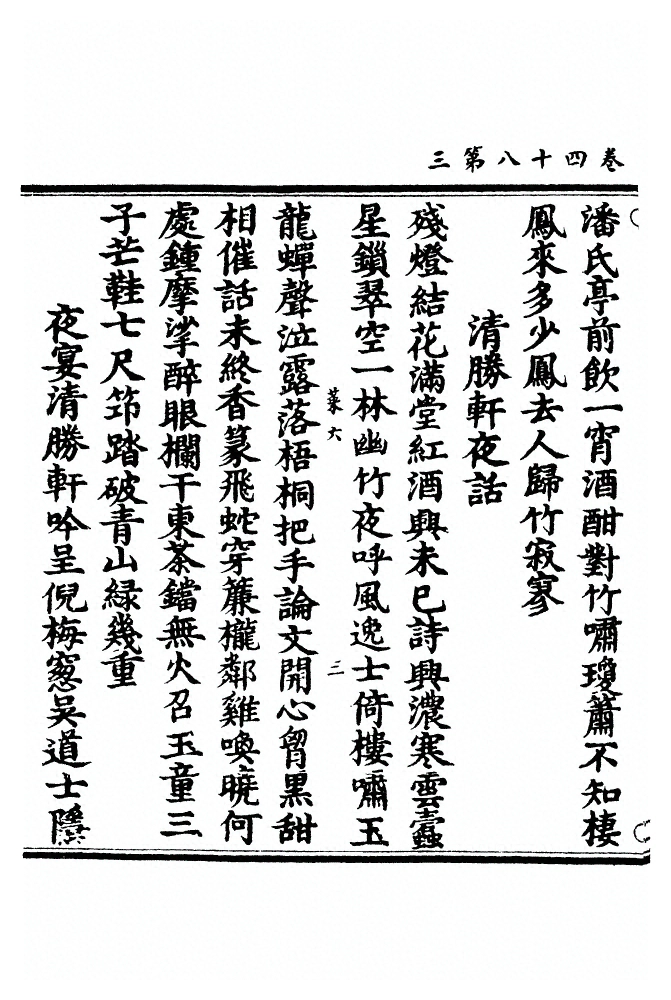 卷四十八第三
潘氏亭前飲一宵酒酣對竹嘯瓊簫不知棲
鳳來多少鳳去人歸竹寂寥
清勝軒夜話
殘燈結花滿堂紅酒興未已詩興濃寒雲蠹
星鎖翠空一林幽竹夜呼風逸士倚樓嘯玉
菜六
三
龍蟬聲泣露落梧桐把手論文開心胷黑甜
相催話未終香篆飛蛇穿簾櫳鄰雞喚曉何
處鍾摩挲醉眼欄干東茶鐺無火召玉童三
子芒鞋七尺筇踏破青山綠幾重
夜宴清勝軒吟呈倪梅窓吳道士隱